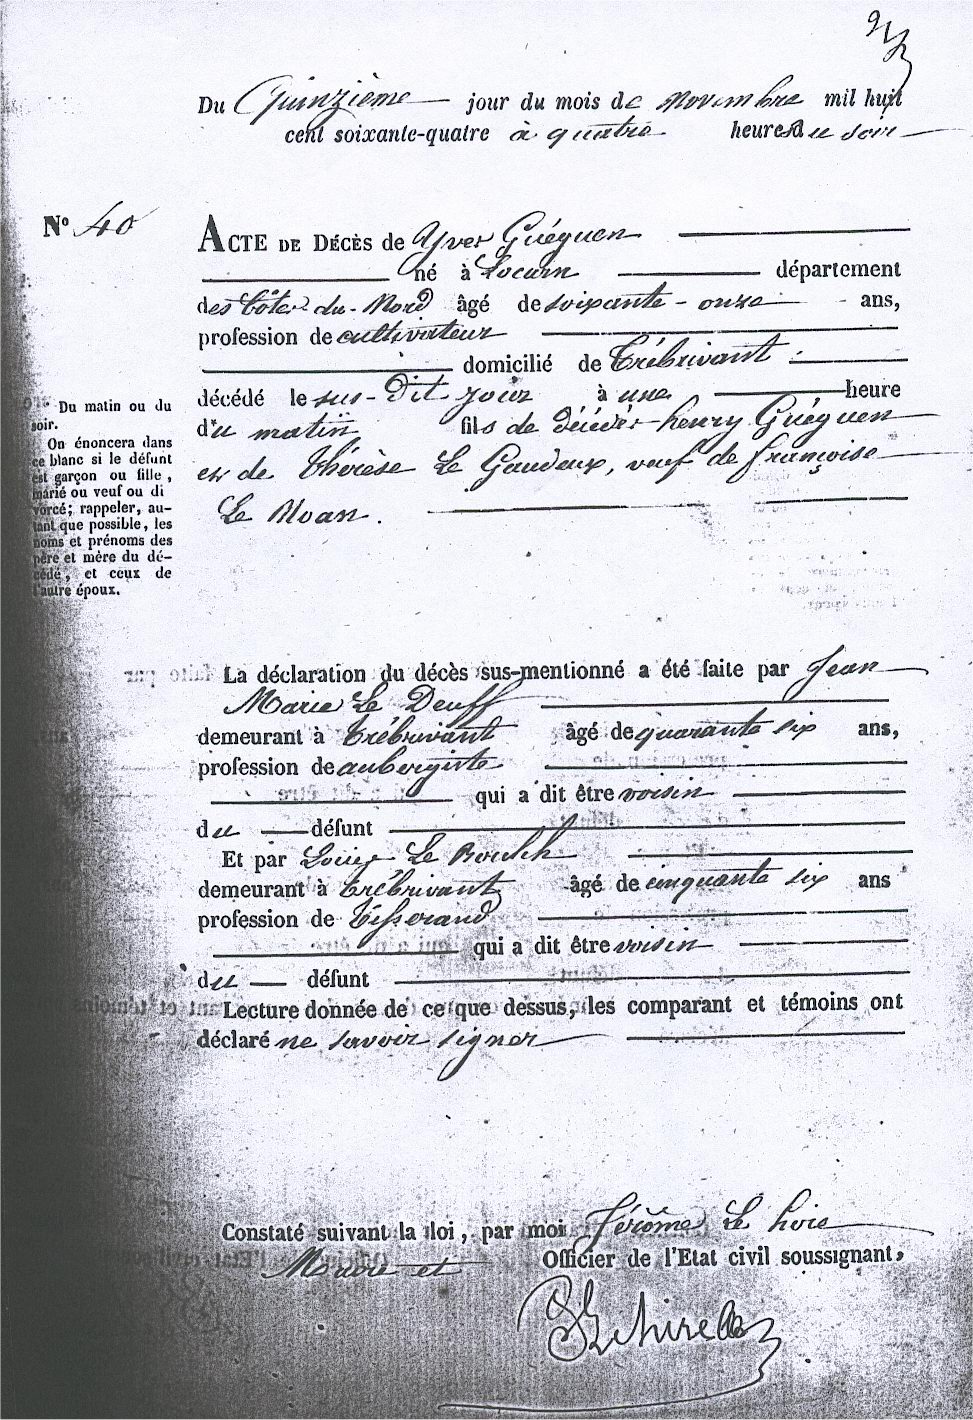 Du Quinzième jour du mois de Novembre mil huit
cent soixante-quatre à quatre heures du soir
N° 40
ACTE DE DÉCÈS de Yves Guéguen
né à Locarn département
des Côtes-du-Nord âgé de soixante-onze ans,
profession de cultivateur
domicilié de Trébrivant
décédé le sus-dit jour à une heure
du matin fils de décédés henry Guéguen
et de Thérèse Le Gaudeux, veuf de françoise
Le Moan.
Du matin ou du
soir.
On énoncera dans
ce blanc si le défunt
est garçon ou fille,
marié ou veuf ou di
vorcé; rappeler, au-
tant que possible, les
noms et prénoms des
père et mère du dé-
cédé, et ceux de
l'autre époux.
La déclaration du décès sus-mentionné a été faite par Jean
Marie Le Deuff
demeurant à Trébrivant âgé de quarante six ans,
profession de aubergiste
qui a dit être voisin
du défunt
Et par Louis Le
demeurant à Trébrivant âgé de cinquante six ans
profession de Tisserand
qui a dit être voisin
du défunt
Lecture donnée de ce que dessus, les comparant et témoins ont
déclaré ne savoir signer
Constaté suivant la loi, par moi Jérôme Le
Maire et Officier de l'Etat civil soussignant,